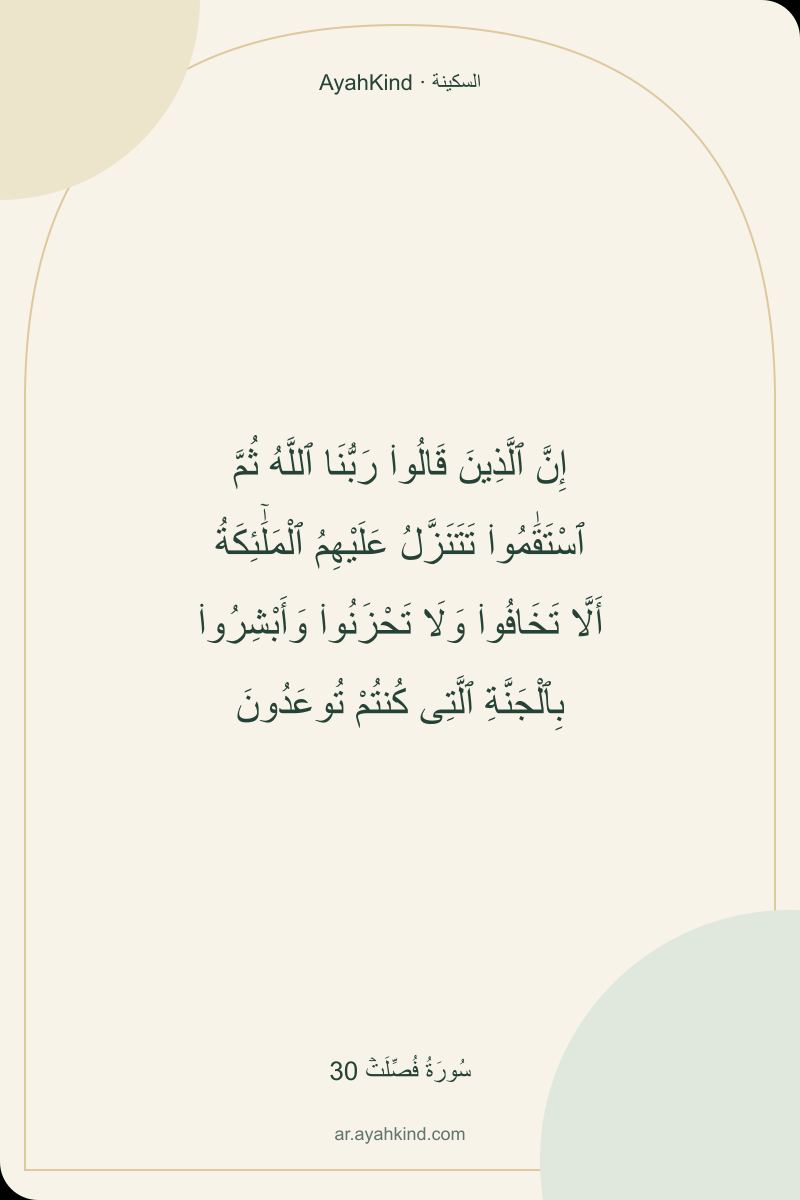 AyahKind · السكينة
إِنَّ ٱلَّذِينَ قَالُوا۟ رَبُّنَا ٱللَّهُ ثُمَّ
ٱسْتَقَٰمُوا۟ تَتَنَزَّلُ عَلَيْهِمُ ٱلْمَلَٰٓئِكَةُ
أَلَّا تَخَافُوا۟ وَلَا تَحْزَنُوا۟ وَأَبْشِرُوا۟
بِٱلْجَنَّةِ ٱلَّتِى كُنتُمْ تُوعَدُونَ
سُورَةُ فُصِّلَتْ 30
ar.ayahkind.com